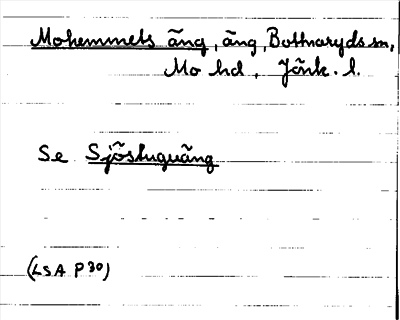 Mohemmets äng, äng, Bottnaryds sn,
Mo hd, Jönk. l.
Se Sjöstuguäng
(LSA P30)